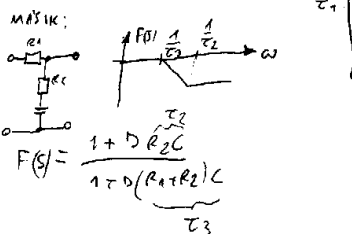 MÁSIK:
R1
R2
F(s)
1/τ3
1/τ2
ω
τ1
F(s) = (1 + s R2C) / (1 + s(R1+R2)C)
τ2
τ3